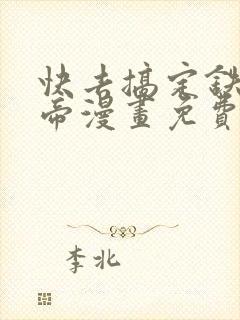 快去搞定鉄
帝漫畫免費
李北